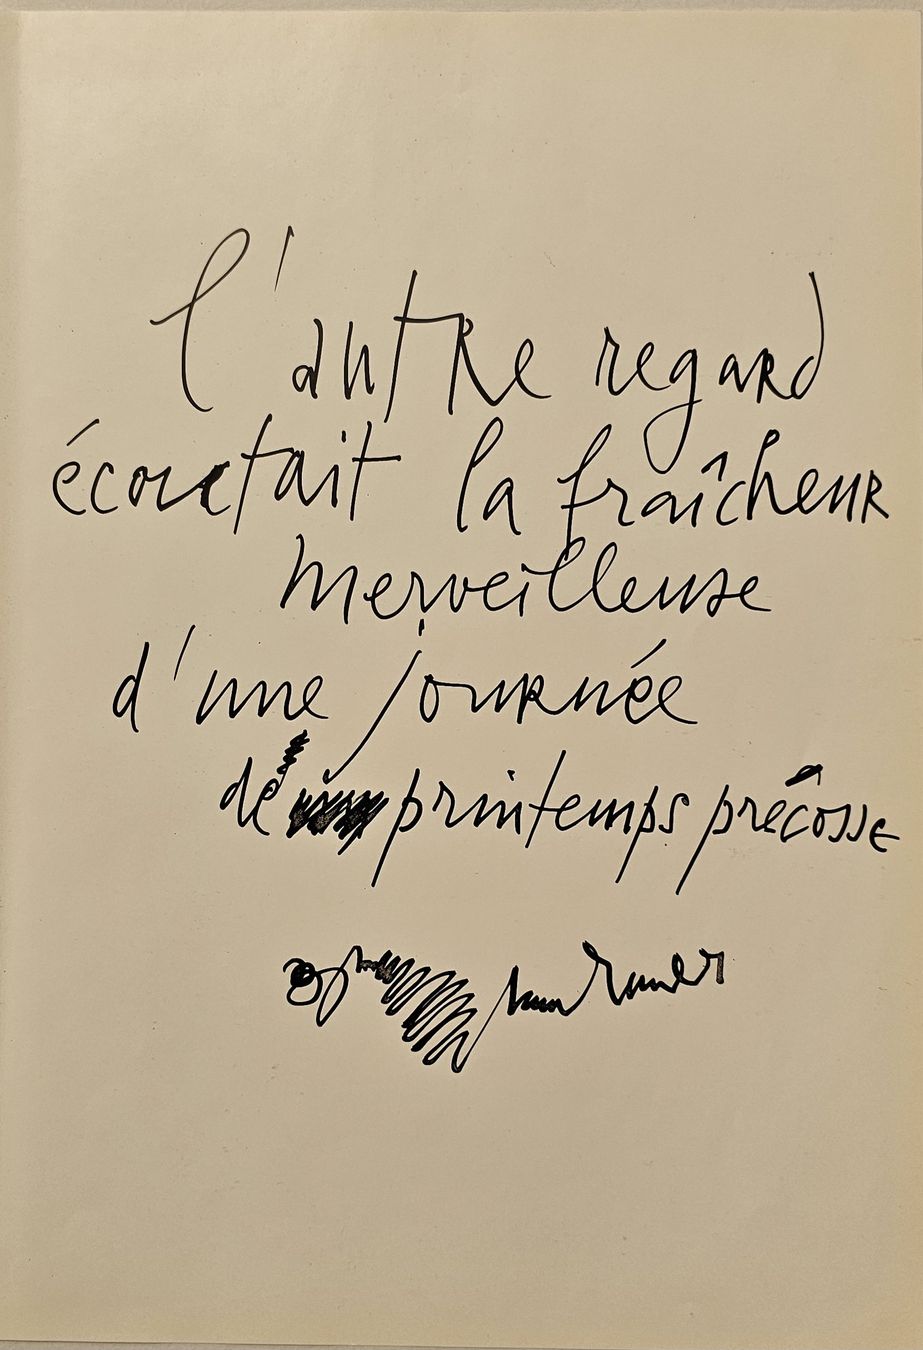 l'autre regard
écoutait la fraîcheur
merveilleuse
d'une journée
de printemps précosse